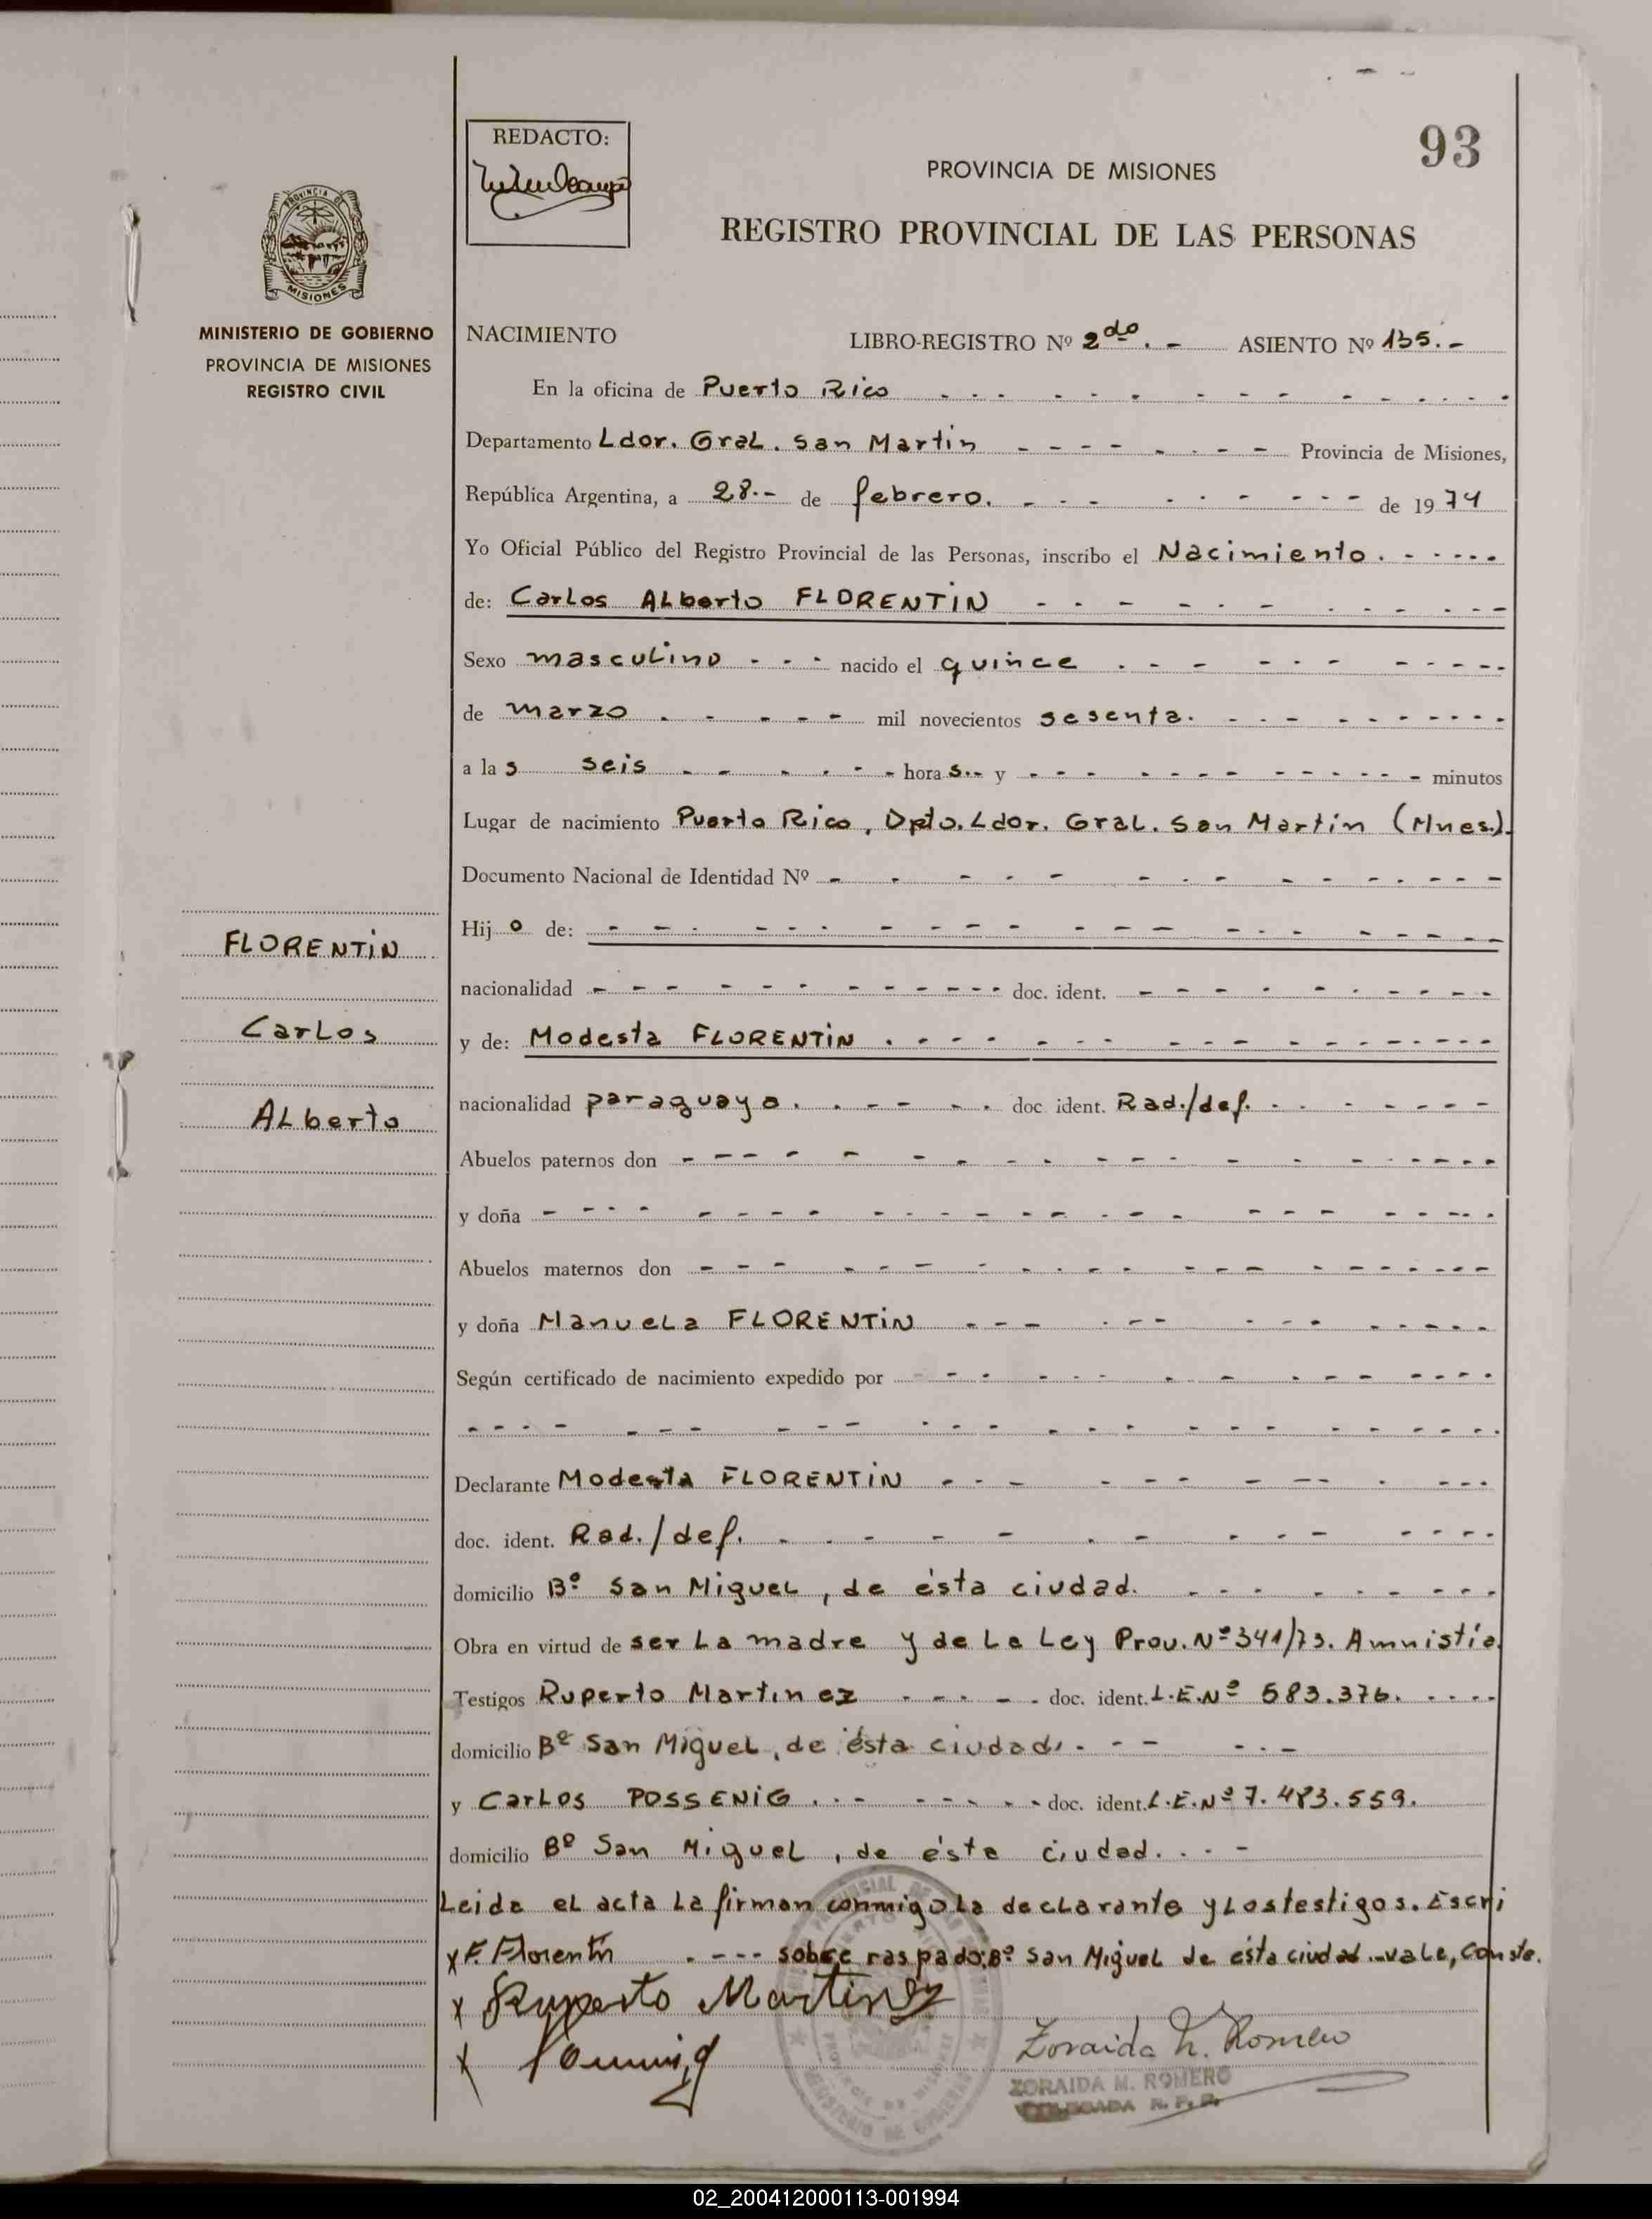 REDACTO:
93
PROVINCIA DE MISIONES
REGISTRO PROVINCIAL DE LAS PERSONAS
PROVINCIA DE
MISIONES
MINISTERIO DE GOBIERNO
PROVINCIA DE MISIONES
REGISTRO CIVIL
NACIMIENTO LIBRO-REGISTRO Nº 2do. - ASIENTO Nº 135.-
En la oficina de Puerto Rico
Departamento Ldor. Gral. San Martin Provincia de Misiones,
República Argentina, a 28.- de febrero. de 1974
Yo Oficial Público del Registro Provincial de las Personas, inscribo el Nacimiento.
de: Carlos Alberto FLORENTIN
Sexo masculino nacido el quince
de marzo mil novecientos sesenta.
a las seis horas.- y minutos
Lugar de nacimiento Puerto Rico, Dpto. Ldor. Gral. San Martin (Mnes.).
Documento Nacional de Identidad Nº
Hijo de:
FLORENTIN
nacionalidad doc. ident.
Carlos
y de: Modesta FLORENTIN
nacionalidad paraguaya. doc. ident. Rad./def.
Alberto
Abuelos paternos don
y doña
Abuelos maternos don
y doña Manuela FLORENTIN
Según certificado de nacimiento expedido por
Declarante Modesta FLORENTIN
doc. ident. Rad./def.
domicilio Bº San Miguel, de ésta ciudad.
Obra en virtud de ser la madre y de la Ley Prov. Nº 341/73. Amnistía.
Testigos Ruperto Martinez doc. ident. L.E.Nº 583.376.
domicilio Bº San Miguel, de ésta ciudad.
y Carlos POSSENIG doc. ident. L.E.Nº 7.483.559.
domicilio Bº San Miguel, de ésta ciudad.
Leida el acta la firman conmigo la declarante y los testigos. Escri
x F. Florentin sobre raspado: Bº San Miguel de ésta ciudad.-vale, Conste.
x Ruperto Martinez
x
Zoraida M. Romero
ZORAIDA M. ROMERO
DELEGADA R. P. P.
02_200412000113-001994